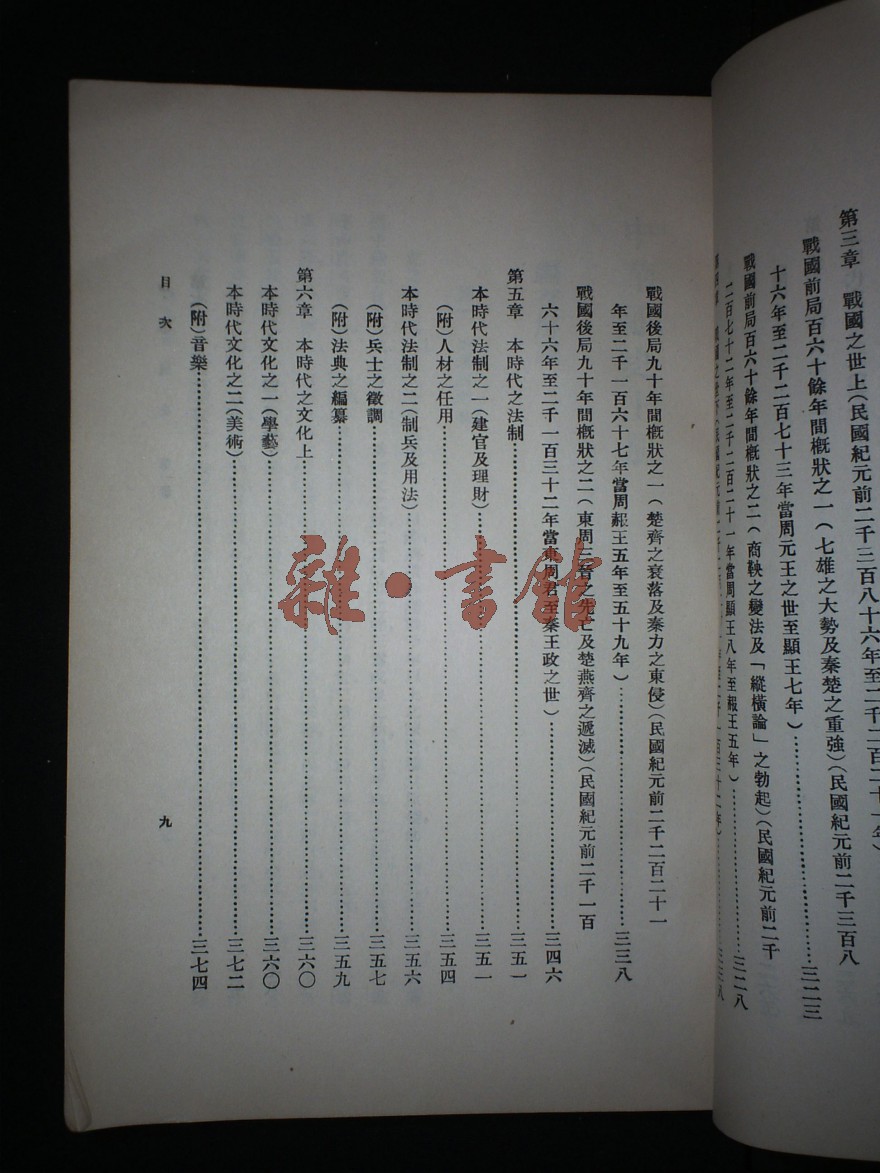 第三章　戰國之世上(民國紀元前二千三百八十六年至二千二百二十一年)
戰國前局百六十餘年間概狀之一(七雄之大勢及秦楚之重強)(民國紀元前二千三百八
十六年至二千二百七十三年當周元王之世至顯王七年)…………三二三
戰國前局百六十餘年間概狀之二(商鞅之變法及「縱橫論」之勃起)(民國紀元前二千
二百七十二年至二千二百二十一年當周顯王八年至赧王五年)…………三二八
戰國後局九十年間概狀之一(楚齊之衰落及秦力之東侵)(民國紀元前二千二百二十一
年至二千一百六十七年當周赧王五年至五十九年)…………三三八
戰國後局九十年間概狀之二(東周三晉之先亡及楚燕齊之遞滅)(民國紀元前二千一百
六十六年至二千一百三十二年當東周君至秦王政之世)…………三四六
第五章　本時代之法制…………三五一
本時代法制之一(建官及理財)…………三五一
(附)人材之任用…………三五四
本時代法制之二(制兵及用法)…………三五六
(附)兵士之徵調…………三五七
(附)法典之編纂…………三五九
第六章　本時代之文化上…………三六〇
本時代文化之一(學藝)…………三六〇
本時代文化之二(美術)…………三七二
(附)音樂…………三七四
目次
九
雜·書館